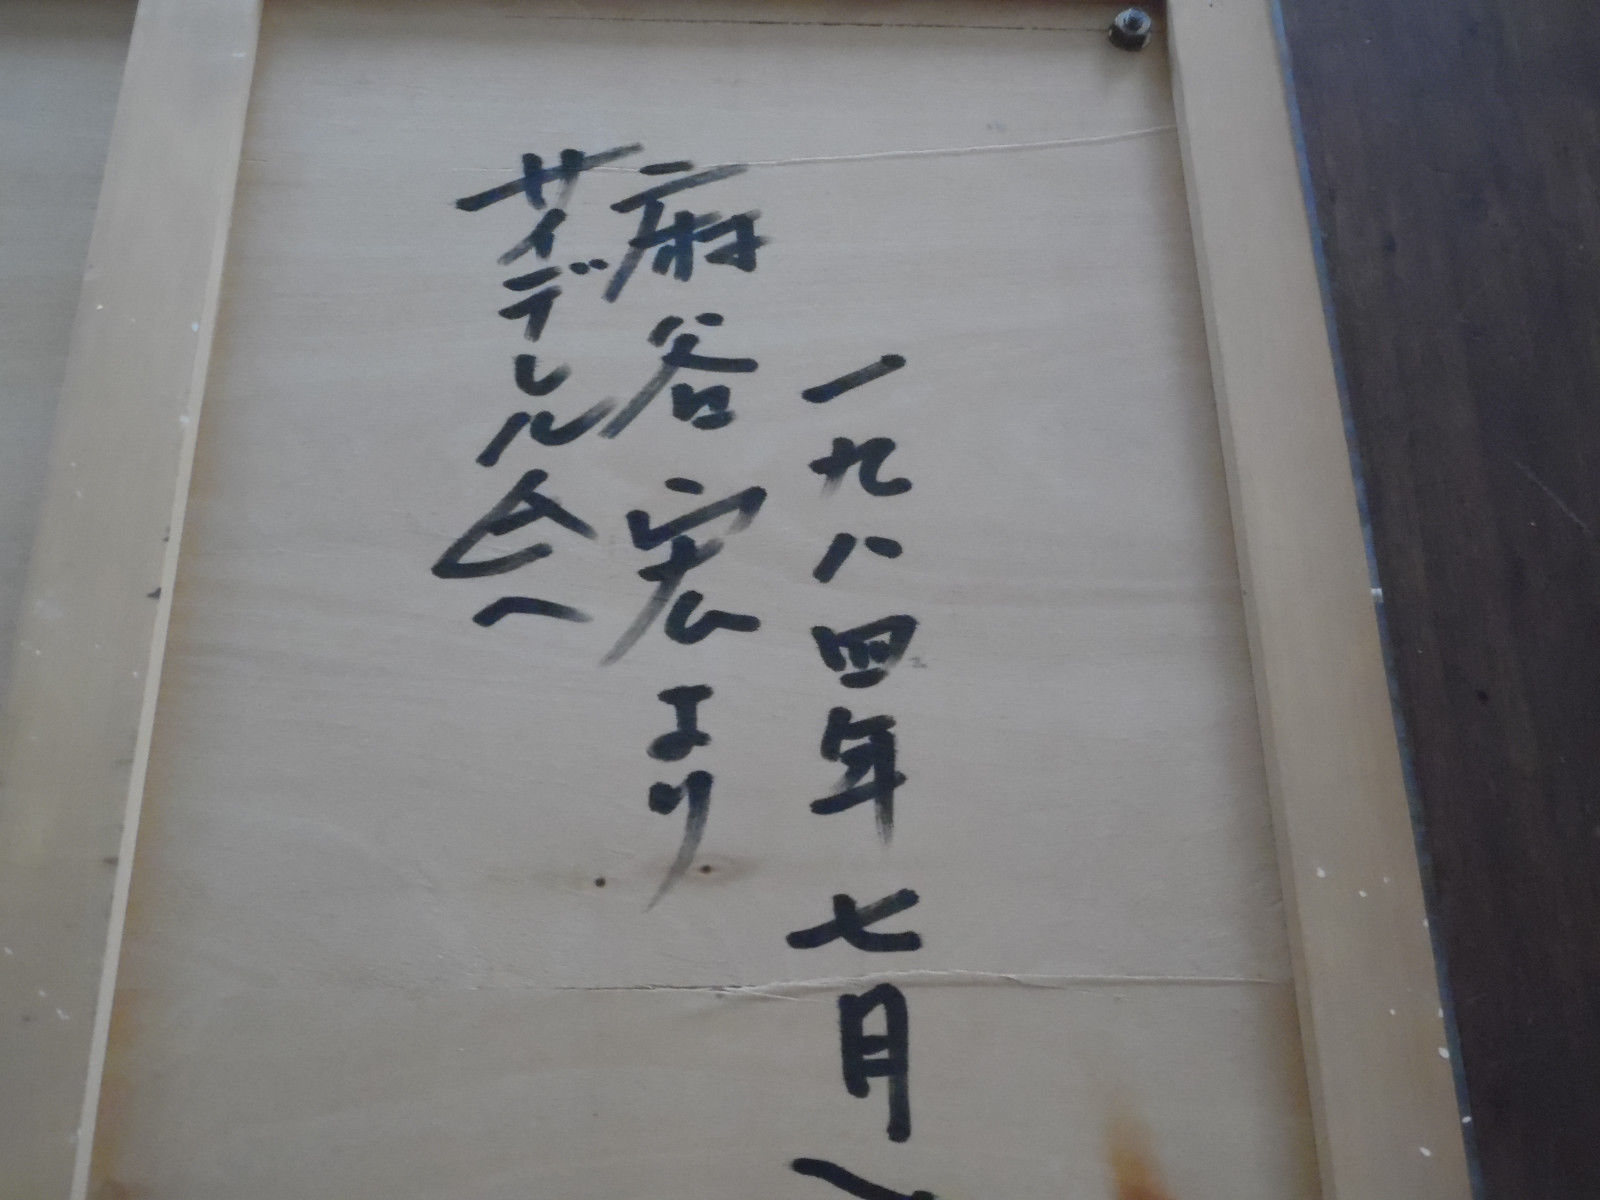 一九八四年 七月
麻谷 宏より
サイデレル会へ